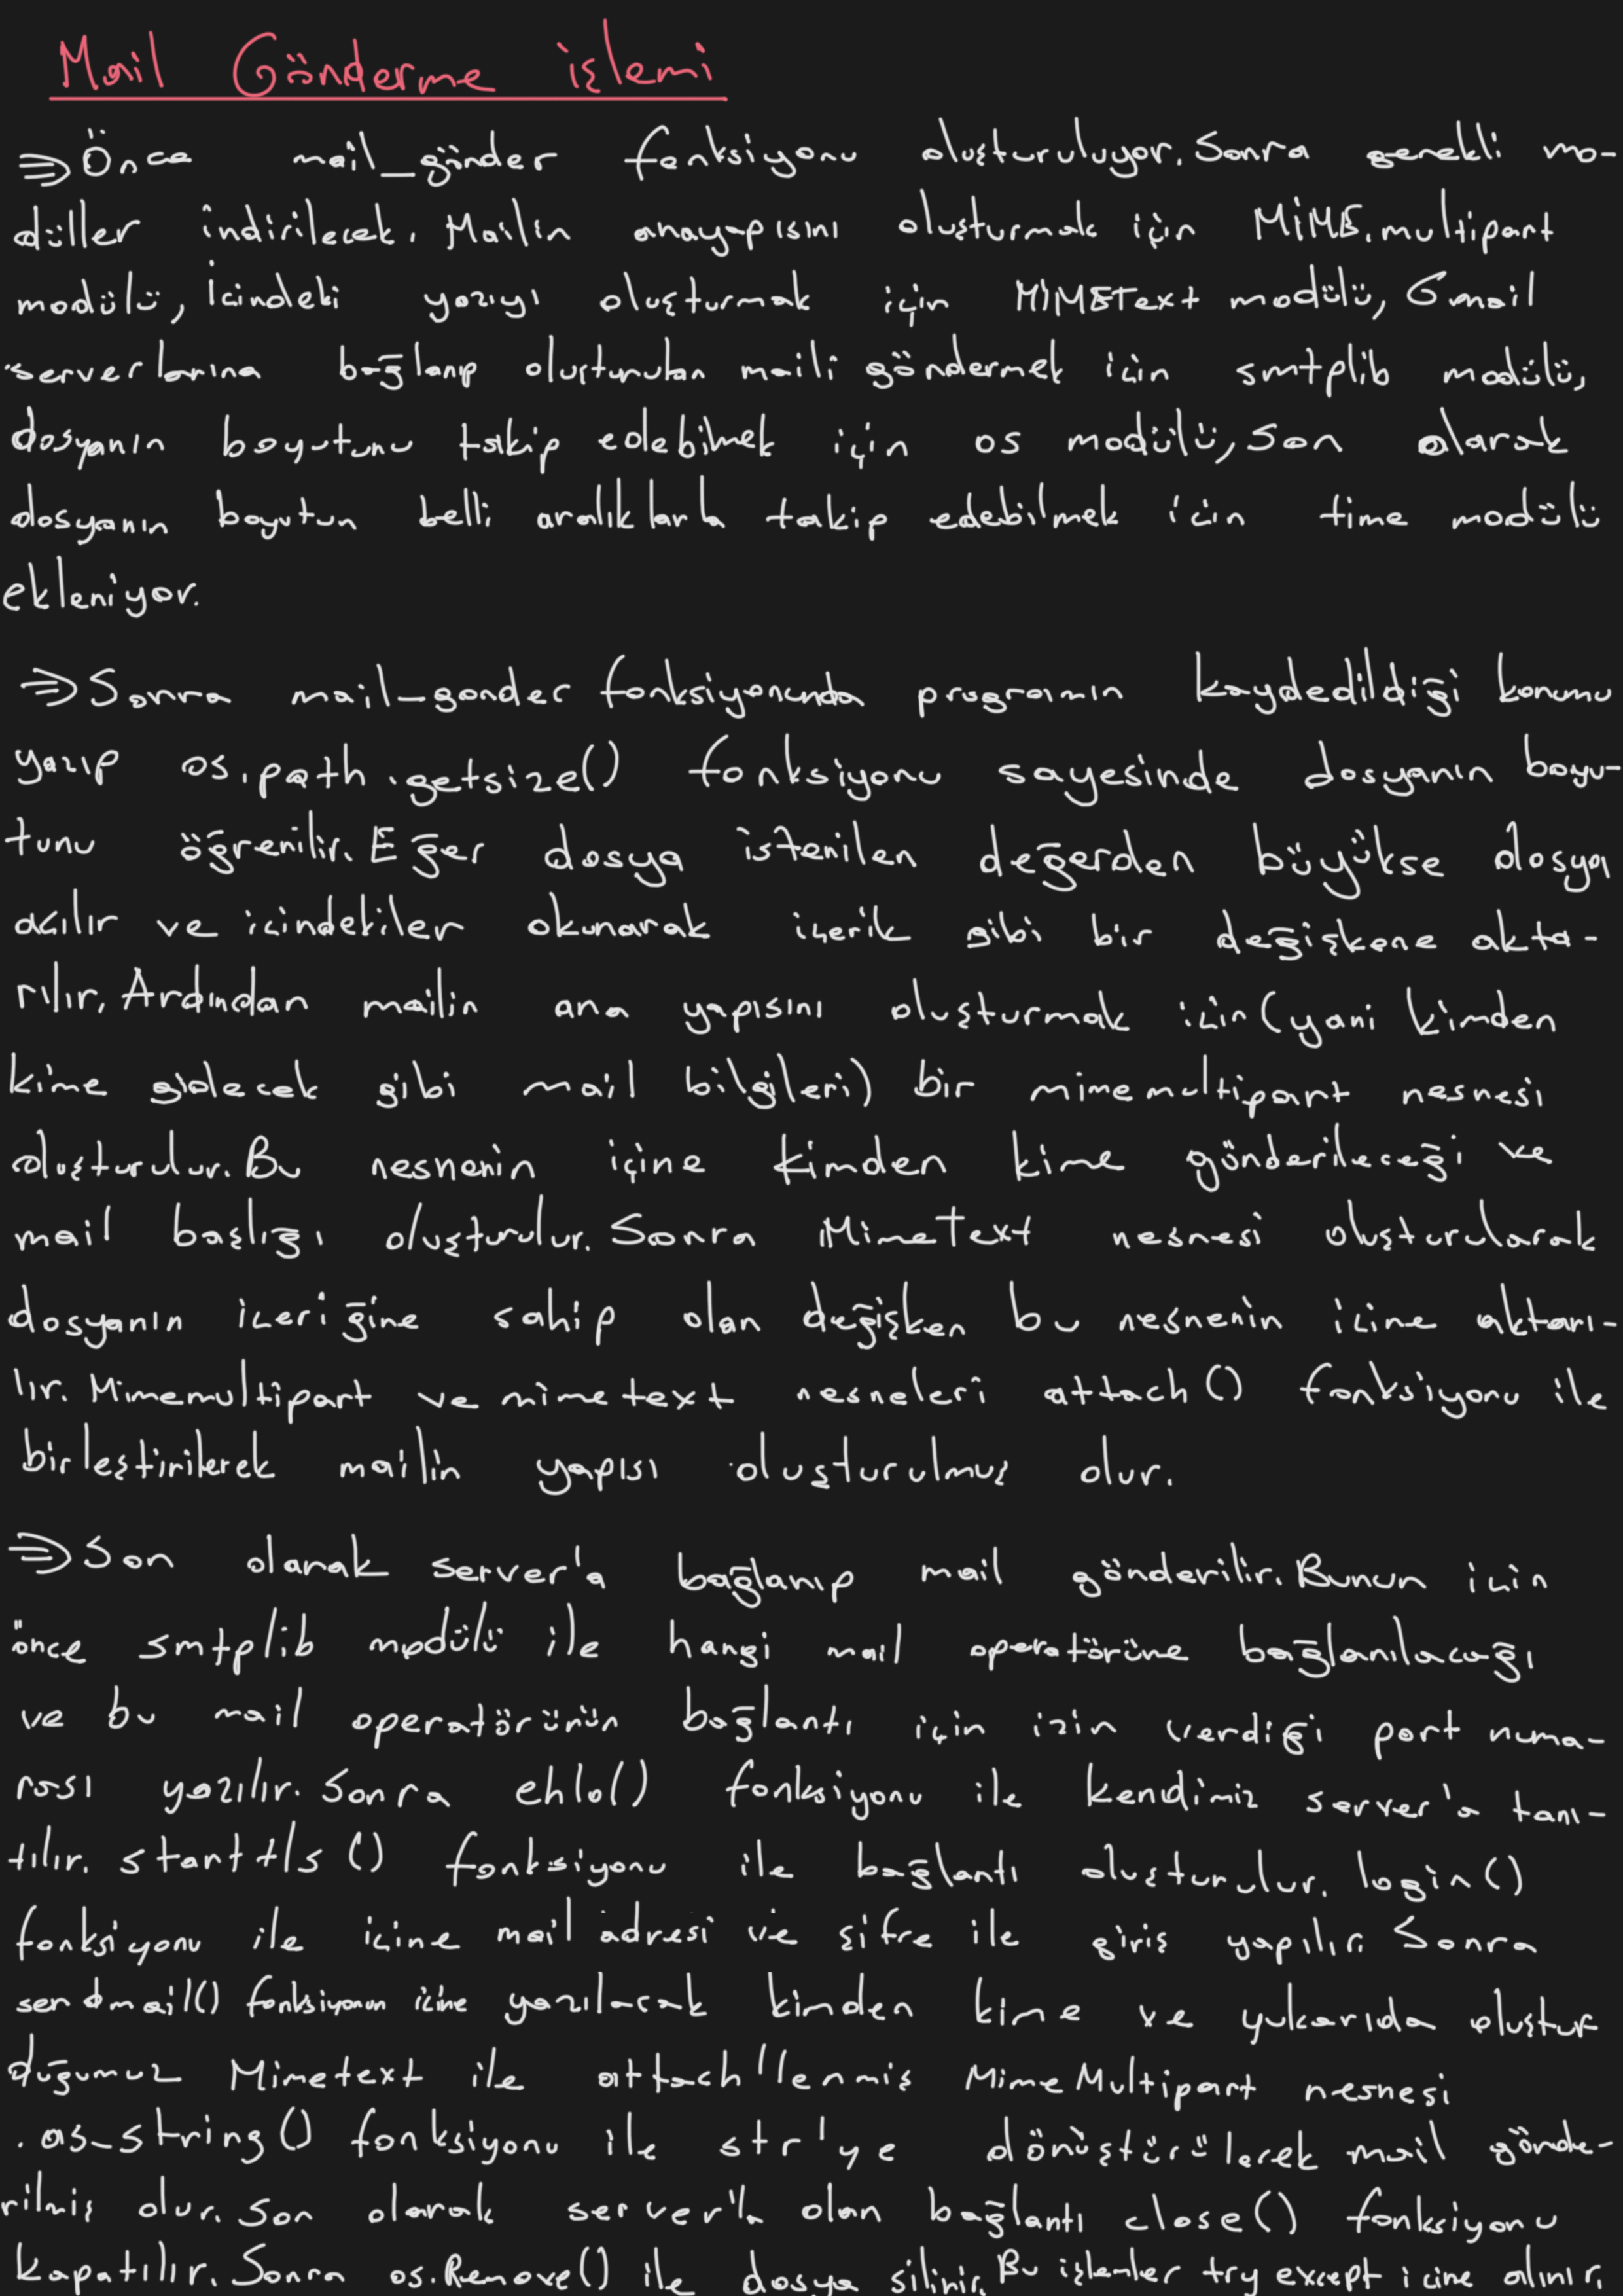 Mail Gönderme işlemi
⇒ Önce mail_gönder fonksiyonu oluşturuluyor. Sonra gerekli mo-
düller indirilecek. Mailin anayapısını oluşturmak için MİME.multipart
modülü, İcindeki yazıyı oluşturmak için MIMEText modülü, Gmail
serverlarına bağlanıp oluşturulan maili göndermek icin smtplib modülü,
dosyanın boyutunu takip edebilmek için os modülü, son olarak
dosyanın boyutun belli aralıklarla takip edebilmek icin time modülü
ekleniyor.
⇒ Sonra mail_gonder fonksiyonunda programın kaydedildiği konumu
yazıp os.path.getsize() fonksiyonu sayesinde dosyanın boyu-
tunu öğrenilir. Eğer dosya istenilen değerden büyükse dosya
acılır ve icindekiler okunarak icerik gibi bir değişkene akta-
rılır. Ardından mailin ana yapısını oluşturmak icin (yani kimden
kime gidecek gibi mail bilgileri) bir mimemultipart nesnesi
oluşturulur. Bu nesnenin içine kimden kime gönderileceği ve
mail başlığı oluşturulur. Sonra MimeText nesnesi oluşturularak
dosyanın iceriğine sahip olan değişken bu nesnenin icine aktarı-
lır. Mimemultipart ve mimetext nesneleri attach() fonksiyonu ile
birleştirilerek mailin yapısı oluşturulmuş olur.
⇒ Son olarak server'a bağlanıp mail gönderilir. Bunun icin
önce smtplib modülü ile hangi mail operatörüne bağlanılacağı
ve bu mail operatörünün bağlantı için izin verdiği port numa-
rası yazılır. Sonra ehlo() fonksiyonu ile kendimiz server'a tanı-
tılır. starttls() fonksiyonu ile bağlantı oluşturulur. login()
fonksiyonu ile icine mail adresi ve şifre ile giriş yapılır. Sonra
sendmail() fonksiyonun icine yazılacak kimden kime ve yukarıda oluştur
duğumuz Mimetext ile attach'lenmiş MimeMultipart nesnesi
.as_string() fonksiyonu ile str'ye dönüştürülerek mail gönde-
rilmiş olur. Son olarak server'la olan bağlantı close() fonksiyonu
kapatılır. Sonra os.Remove() ile dosya silinir. Bu işlemler try except icine alınır.